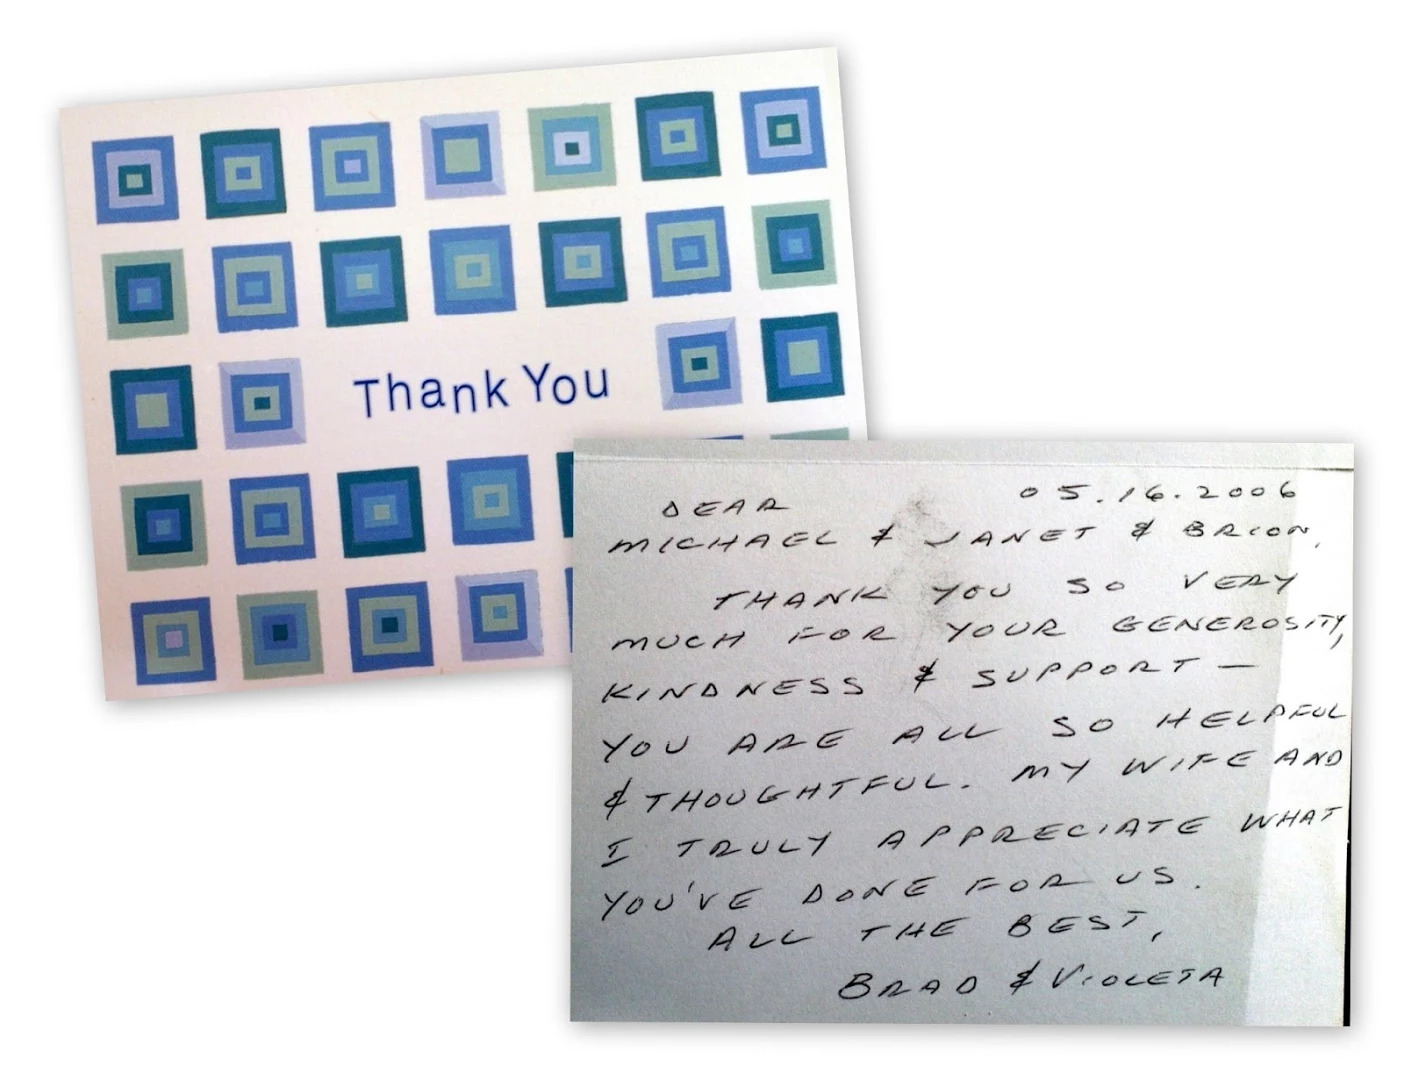 Thank You
05.16.2006
DEAR
MICHAEL & JANET & BRION,
THANK YOU SO VERY
MUCH FOR YOUR GENEROSITY,
KINDNESS & SUPPORT —
YOU ARE ALL SO HELPFUL
& THOUGHTFUL. MY WIFE AND
I TRULY APPRECIATE WHAT
YOU'VE DONE FOR US.
ALL THE BEST,
BRAD & VIOLETA